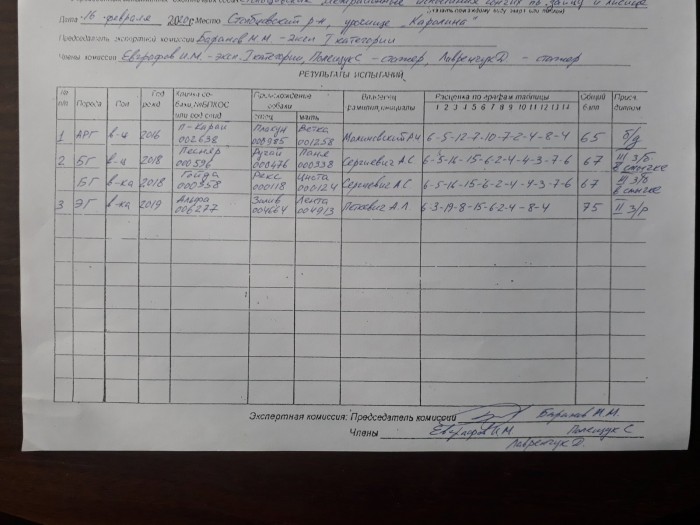 испытания гончих по зайцу и лисице
Дата 16 февраля 2020г Место Столбцовский р-н, урочище "Каролина"
Председатель экспертной комиссии Баранов М.М. - эксп I категории
Члены комиссии Евграфов И.М. - эксп. I категории, Полещук С - стажер, Лавренчук Д. - стажер
РЕЗУЛЬТАТЫ ИСПЫТАНИЙ
№ п/п Порода Пол Год рожд Кличка собаки, №ВПКОС или род свид Происхождение собаки отец мать Владелец фамилия, инициалы Расценка по графам таблицы 1 2 3 4 5 6 7 8 9 10 11 12 13 14 Общий балл Присв. диплом
1 АРГ в-ц 2016 П-Карай 002638 Плакун Ветка 001258 Малиновский А.Ч 6-5-12-7-10-7-2-4-8-4 65 б/д
2 БГ в-ц 2018 000596 Ругай 000476 000338 Сергиевич А.С 6-5-16-15-6-2-4-4-3-7-6 67 III з/б в смычке
БГ в-ка 2018 Гойда 000358 Рекс 000118 000124 Сергиевич А.С 6-5-16-15-6-2-4-4-3-7-6 67 III з/б в смычке
3 ЭГ в-ка 2019 Альфа 006277 Залив 004664 Лента 004913 6-3-19-8-15-6-2-4-8-4 75 II з/р
Экспертная комиссия: Председатель комиссии Баранов М.М.
Члены Евграфов И.М. Полещук С
Лавренчук Д.